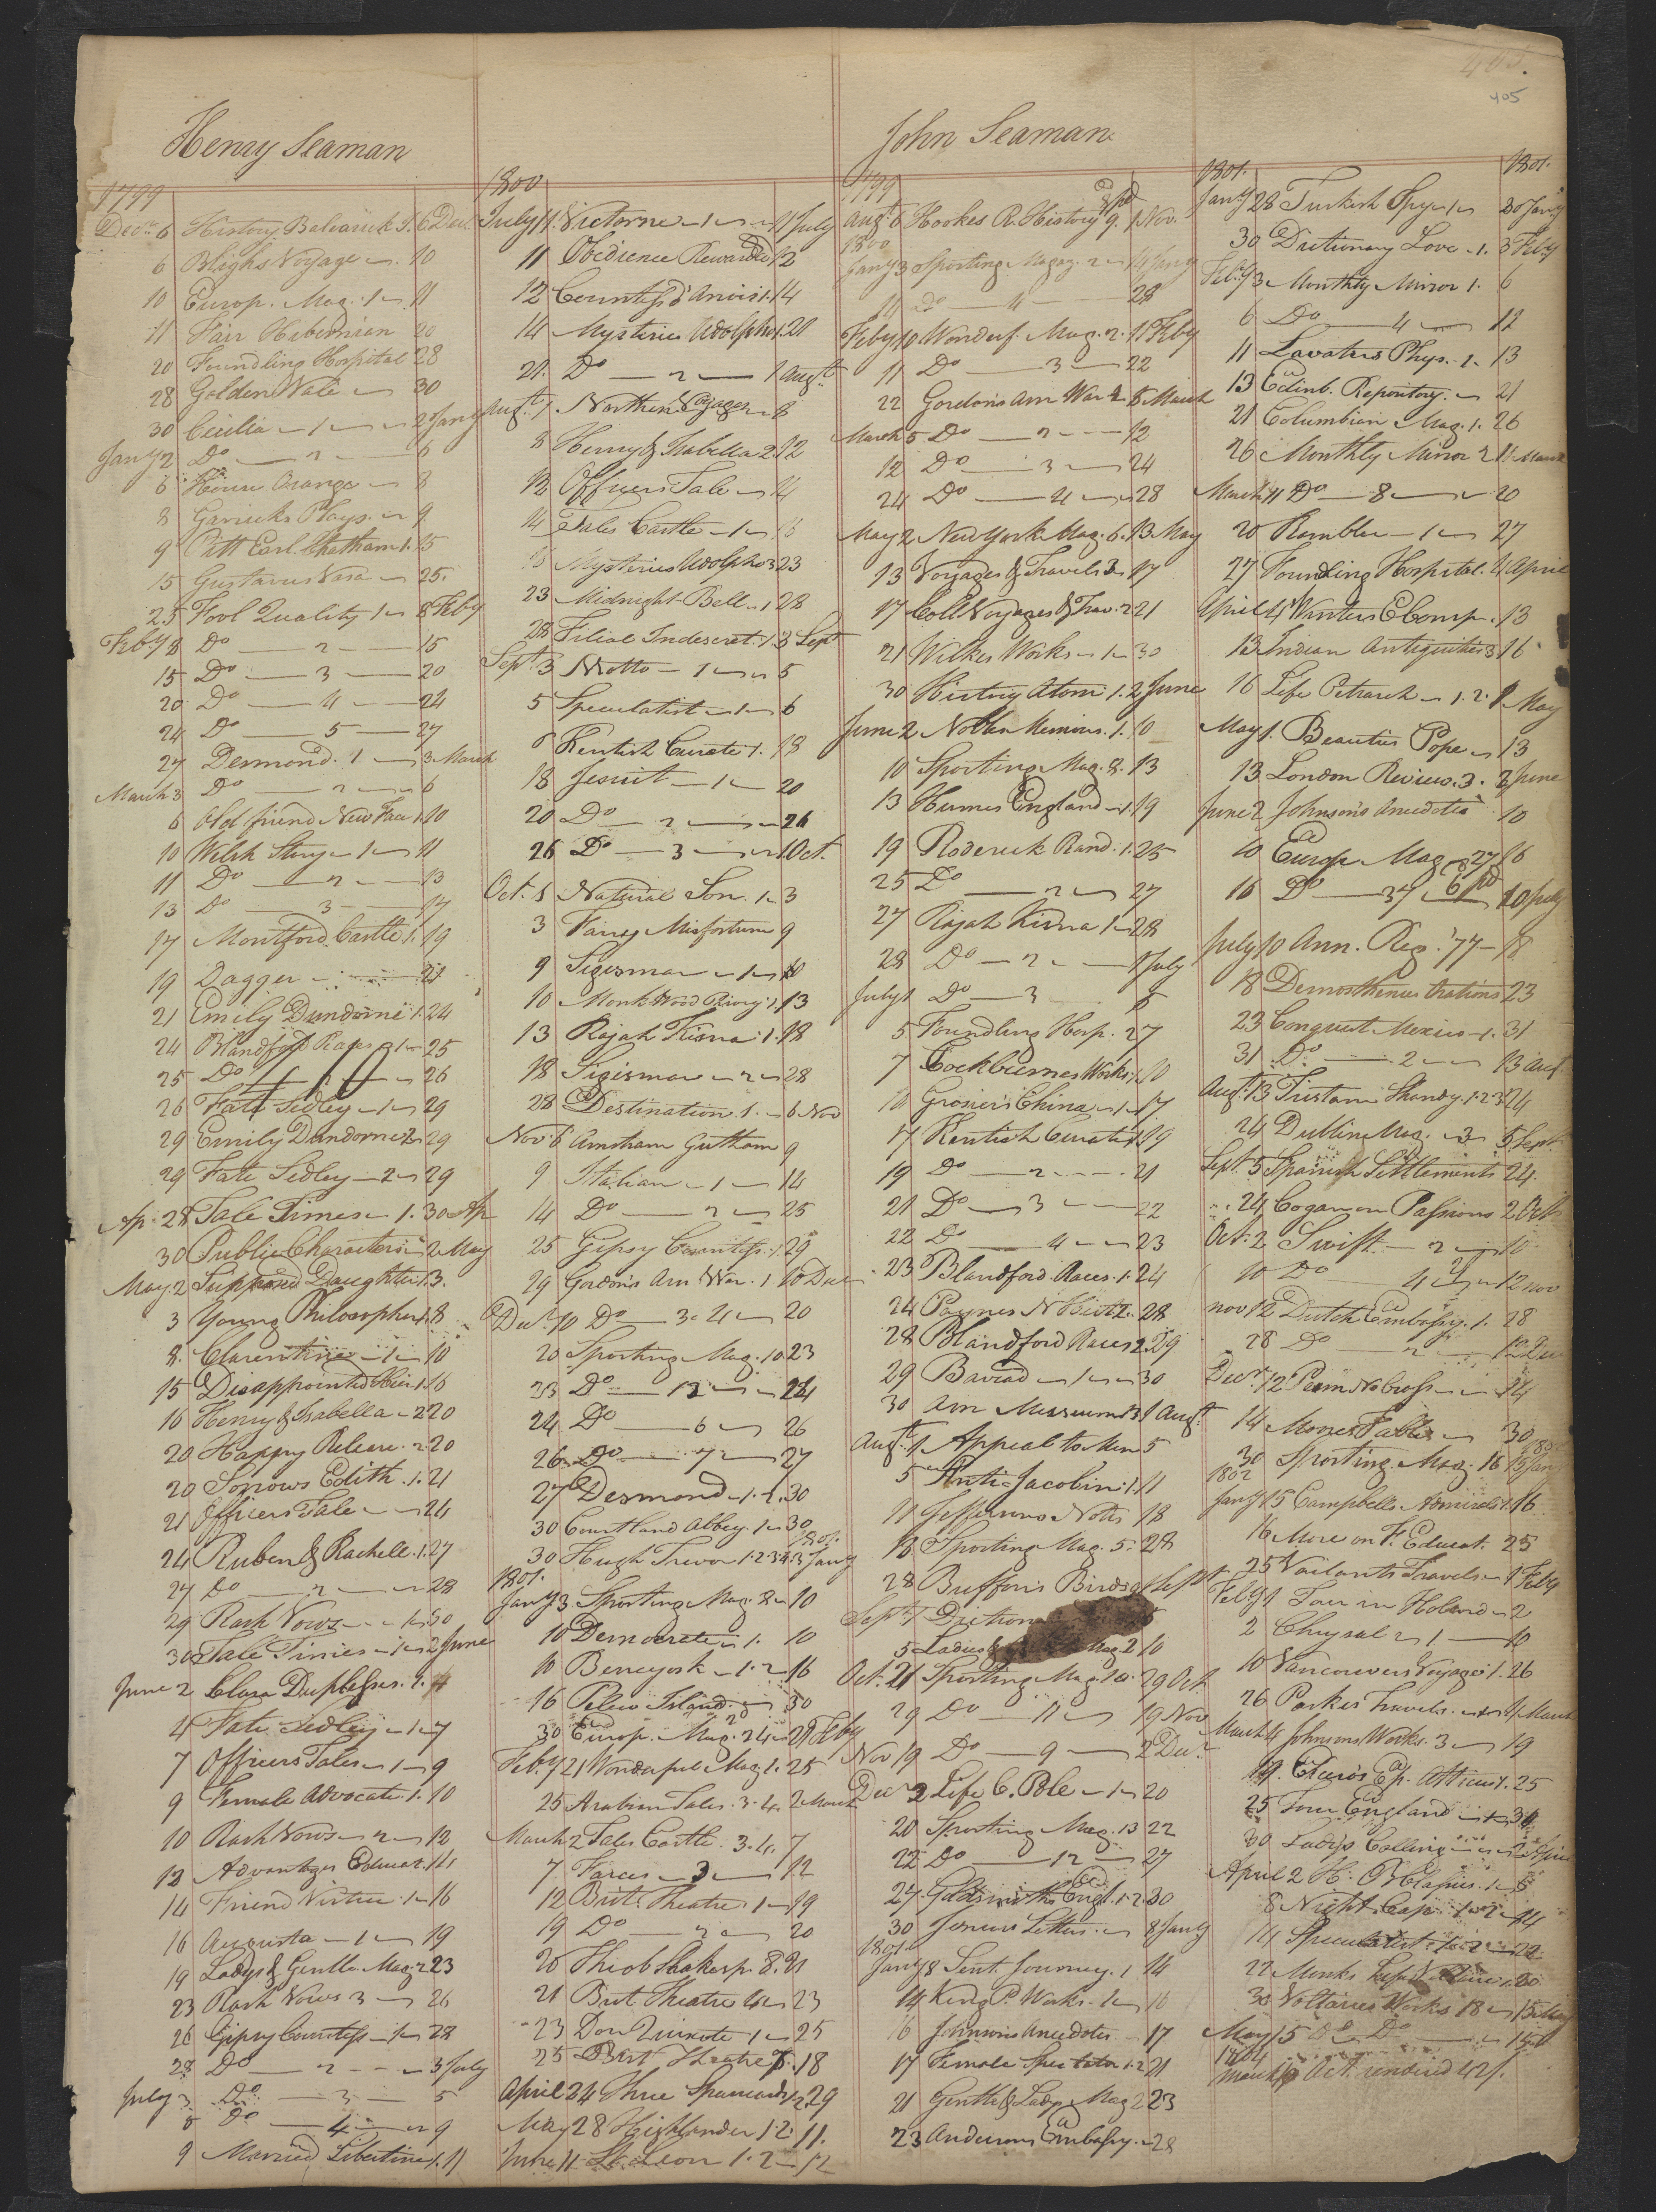 405.
405
Henry Seaman
1799
Decr. 6 History Balearick I. 6 Decr.
6 Blighs Voyage 10
10 Europ. Mag. 1 11
11 Fair Hibernian 20
20 Foundling Hospital 28
28 Golden Vale 30
30 Cicilia 1 2 Jany
Jany 2 Do 2 6
6 House Orange 8
8 Garricks Plays 9
9 Pitt Earl Chatham 1. 15
15 Gustavus Vasa 25.
25 Fool Quality 1 8 Feby
Feby 8 Do 2 15
15 Do 3 20
20 Do 4 24
24 Do 5 27
27 Desmond. 1 3 March
March 3 Do 2 6
6 Old friend New Face 1 10
10 Welsh Story 1 11
11 Do 2 13
13 Do 3 17
17 Montford Castle 1. 19
19 Dagger 21
21 Emily Dundorne 1. 24
24 Blandford Races 1 25
25 Do 26
26 Fate Sedley 1 29
29 Emily Dundorne 2 29
29 Fate Sedley 2 29
Ap. 28 Tale Times 1. 30 Ap
30 Public Characters 2 May
May. 2 Supposed Daughter 1. 3.
3 Young Philosopher 1. 8
8. Clarentine 1 10
15 Disappointed Heir 1. 16
16 Henry & Isabella 2 20
20 Happy Release. 2. 20
20 Sorrows Edith. 1. 21
21 Officers Tale 24
24 Ruben & Rachell. 1. 27
27 Do 2 28
29 Rash Vows 1 30
30 Tale Times 1 2 June
June 2 Clara Duplessis. 1. 4
4 Fate Sedley 1 7
7 Officers Tales 1 9
9 Female Advocate. 1. 10
10 Rash Vows 2 12
12 Advantages Educat. 14
14 Friend Virtue. 1 16
16 Augusta 1 19
19 Ladys & Gentln. Mag. 2 23
23 Rash Vows 3 26
26 Gipsy Countess 1 28
28 Do 2 3 July
July 3 Do 3 5
5 Do 4 9
9 Married Libertine 1. 11
1800
July 11. Victorine 1 11 July
11 Obedience Rewarded 12
12 Countess d'Anois 1. 14
14 Mysteries Udolpho 1. 21
21. Do 2 1 Augt.
Augt. 1 Northern Voyages 8
8 Henry & Isabella 2. 12
12 Officers Tale 14
14 Tales Castle 1
Mysteries Udolpho 3 23
23 Midnight Bell 1 28
28 Filial Indescret. 1 3 Sept
Sept. 3 Notto 1 5
5 Speculatist 1 6
6 Kentish Curate 1. 18
18 Jesuit 1 20
20 Do 2 26
26 Do 3 1 Oct.
Oct. 1 Natural Son. 1 3
3 Fanny Misfortune 9
9 Sigismar 1 10
10 Monk Wood Priory 1. 13
13 Rajah Kisna 1. 18
18 Sigismar 2 28
28 Destination 1. 6 Nov
Nov 6 Amsham Gutham 9
9 Italian 1 14
14 Do 2 25
25 Gipsy Countess. 1. 29
29 Gordons Am War. 1 10 Decr
Decr. 10 Do 3. 4 20
20 Sporting Mag. 10. 23
23 Do 12 24
24 Do 6 26
26. Do 7 27
27 Desmond 1. 2. 30
30 Courtland Abbey. 1 30
1801.
30 Hugh Trevor 1. 2. 3 4 3 Jany
1801.
Jany 3 Sporting Mag. 2 10
10 Democrate 1. 10
10 Beneyosk 1. 2 16
16 Pelew Island. 30
30 Europ. Mag. 24 21 Feby
Feby 21 Wonderful Mag 1. 25
25 Arabian Tales. 3. 4. 2 March
March 2 Tales Castle. 3. 4. 7
7 Farces 3 12
12 Brit. Theatre 1 19
19 Do 2 20
20 Theob Shakesp. 8. 21
21 Brit Theatre 4 23
23 Don Quixote 1 25
25 Brit Theatre 7. 18
April 24 Three Spaniards 1. 2. 29
May 28 Highlander 1. 2. 11.
June 11 St. Leon 1. 2 12
John Seaman
1799
Augt. 6 Hookes R. History 9. 1 Nov.
1800
Jany 3 Sporting Magaz. 2 14 Jany
14 Do 4 28
Feby 10 Wonderf. Mag. 2. 11 Feby
11 Do 3 22
22 Gordons Am War 1 5 March
March 5 Do 2 12
12 Do 3 24
24 Do 4 28
May 2 New York Mag. 6. 13 May
13 Voyages & Travels 3 17
17 Coll Voyages & Trav. 2 21
21 Wilkes Works 1 30
30 History Atom 1. 2 June
June 2 Noblen Memoirs. 1. 10
10 Sporting Mag. 2. 13
13 Humes England 1. 19
19 Roderick Rand. 1. 25
25 Do 2 27
27 Rajah Kisna 1 28
28 Do 2 1 July
July 1 Do 3 5
5 Foundling Hosp. 2 7
7 Cockburnes Works 1. 10
10 Grosiers China 1 17
17 Kentish Curate 1. 19
19 Do 2 21
21 Do 3 22
22 Do 4 23
23 Blandford Races. 1. 24
24 Paynes N Hist 2. 28
28 Blandford Races 2. 29
29 Baviad 1 30
30 Am Museum 1 Augt.
Augt. 1 Appeal to Men 5
5 Anti-Jacobin. 1. 11
11 Jeffersons Notes 18
18 Sporting Mag. 5. 28
28 Buffons Birds 1 Sept
Sept. 1 Diction 5
5 Ladies & Mag 2 10
Oct. 21 Sporting Mag 10. 29 Oct
29 Do 11 19 Nov
Nov 19 Do 9 2 Decr.
Decr 2 Life C. Pole 1 20
20 Sporting Mag. 13 22
22 Do 12 27
27 Goldsmiths Engl. 1. 2. 30
30 Junius Letters. 8 Jany
1801
Jany 8 Sent. Journey. 1 14
14 King P. Works. 1 16
16 Johnsons Anecdotes 17
17 Female Spectator 1. 2 21
21 Gentln & Ladys Mag 2 23
23 Andersons Embassy. 28
1801. 1801.
Jany 28 Turkish Spy 1 30 Jany
30 Dictionary Love 1. 3 Feby
Feby 3 Monthly Mirror 1. 6
6 Do 4 11
11 Lavaters Phys. 1. 13
13 Edinb. Repository. 21
21 Columbian Mag. 1. 26
26 Monthly Mirror 2 11 March
March 11 Do 8 20
20 Rambler 1 27
27 Foundling Hospital. 4 April
April 4 Winters E Comp. 13
13 Indian Antiquities 3 16
16 Life Petrarch 1. 2. 1 May
May 1. Beauties Pope 13
13 London Review. 3. 2 June
June 2 Johnsons Anecdotes 10
10 Europ Mag 27 16
16 Do 31 6pd 10 July
July 10 Ann. Reg. '77 18
18 Demosthenus Orations 23
23 Conquest Mexico 1. 31
31 Do 2 13 Aut
Augt. 13 Tristam Shandy. 1. 2 3 24
24 Dublin Mag. 3 5 Sept.
Sept. 5 Spanish Settlements 24.
24 Cogan on Passions 2 Oct
Oct. 2 Swift 2 10
10 Do 4 12 nov
nov 12 Dutch Embassy. 1. 28
28 Do 2 12 Decr
Decr. 12 14
14 Moores Fables 30
30 Sporting Mag. 16 15 Jany
1802
Jany 15 Campbells Admirals 1. 16
16 More on F. Educat. 25
25 Vailants Travels 1 Feby
Feby 1 Tour in Holand 2
2 Chrysal 1 10
10 Vancouvers Voyages 1. 26
26 Parkes Travels. 4 March
March 4 Johnsons Works. 3 19
19. Ciceros Ep. Atticus 1. 25
25 Tour England 30
30 Ladys Calling 2 April
April 2 H. 1 8
8 Night Cap. 1. 2 14
14 Speculatist 1. 2 22
22 Monks 30
30 Voltaires Works 18 15 May
May 15 Do Do 15
1804
March Act. rendered 42/.